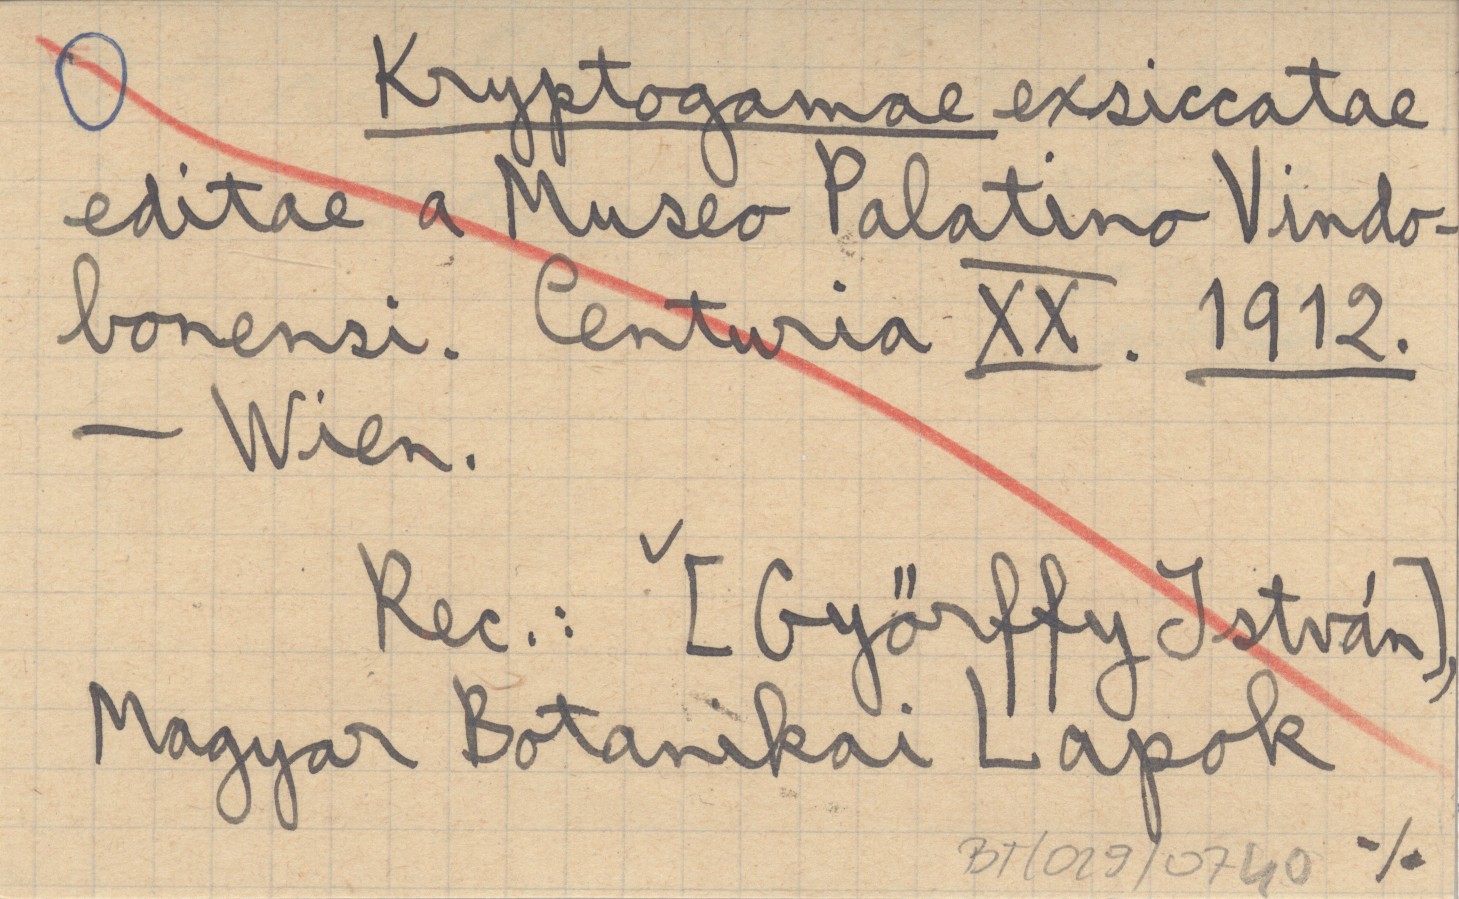 Kryptogamae exsiccatae
editae a Museo Palatino Vindo-
bonensi. Centuria XX. 1912.
— Wien.
Rec.: [Győrffy István],
Magyar Botanikai Lapok
BT/029/0740 ./.